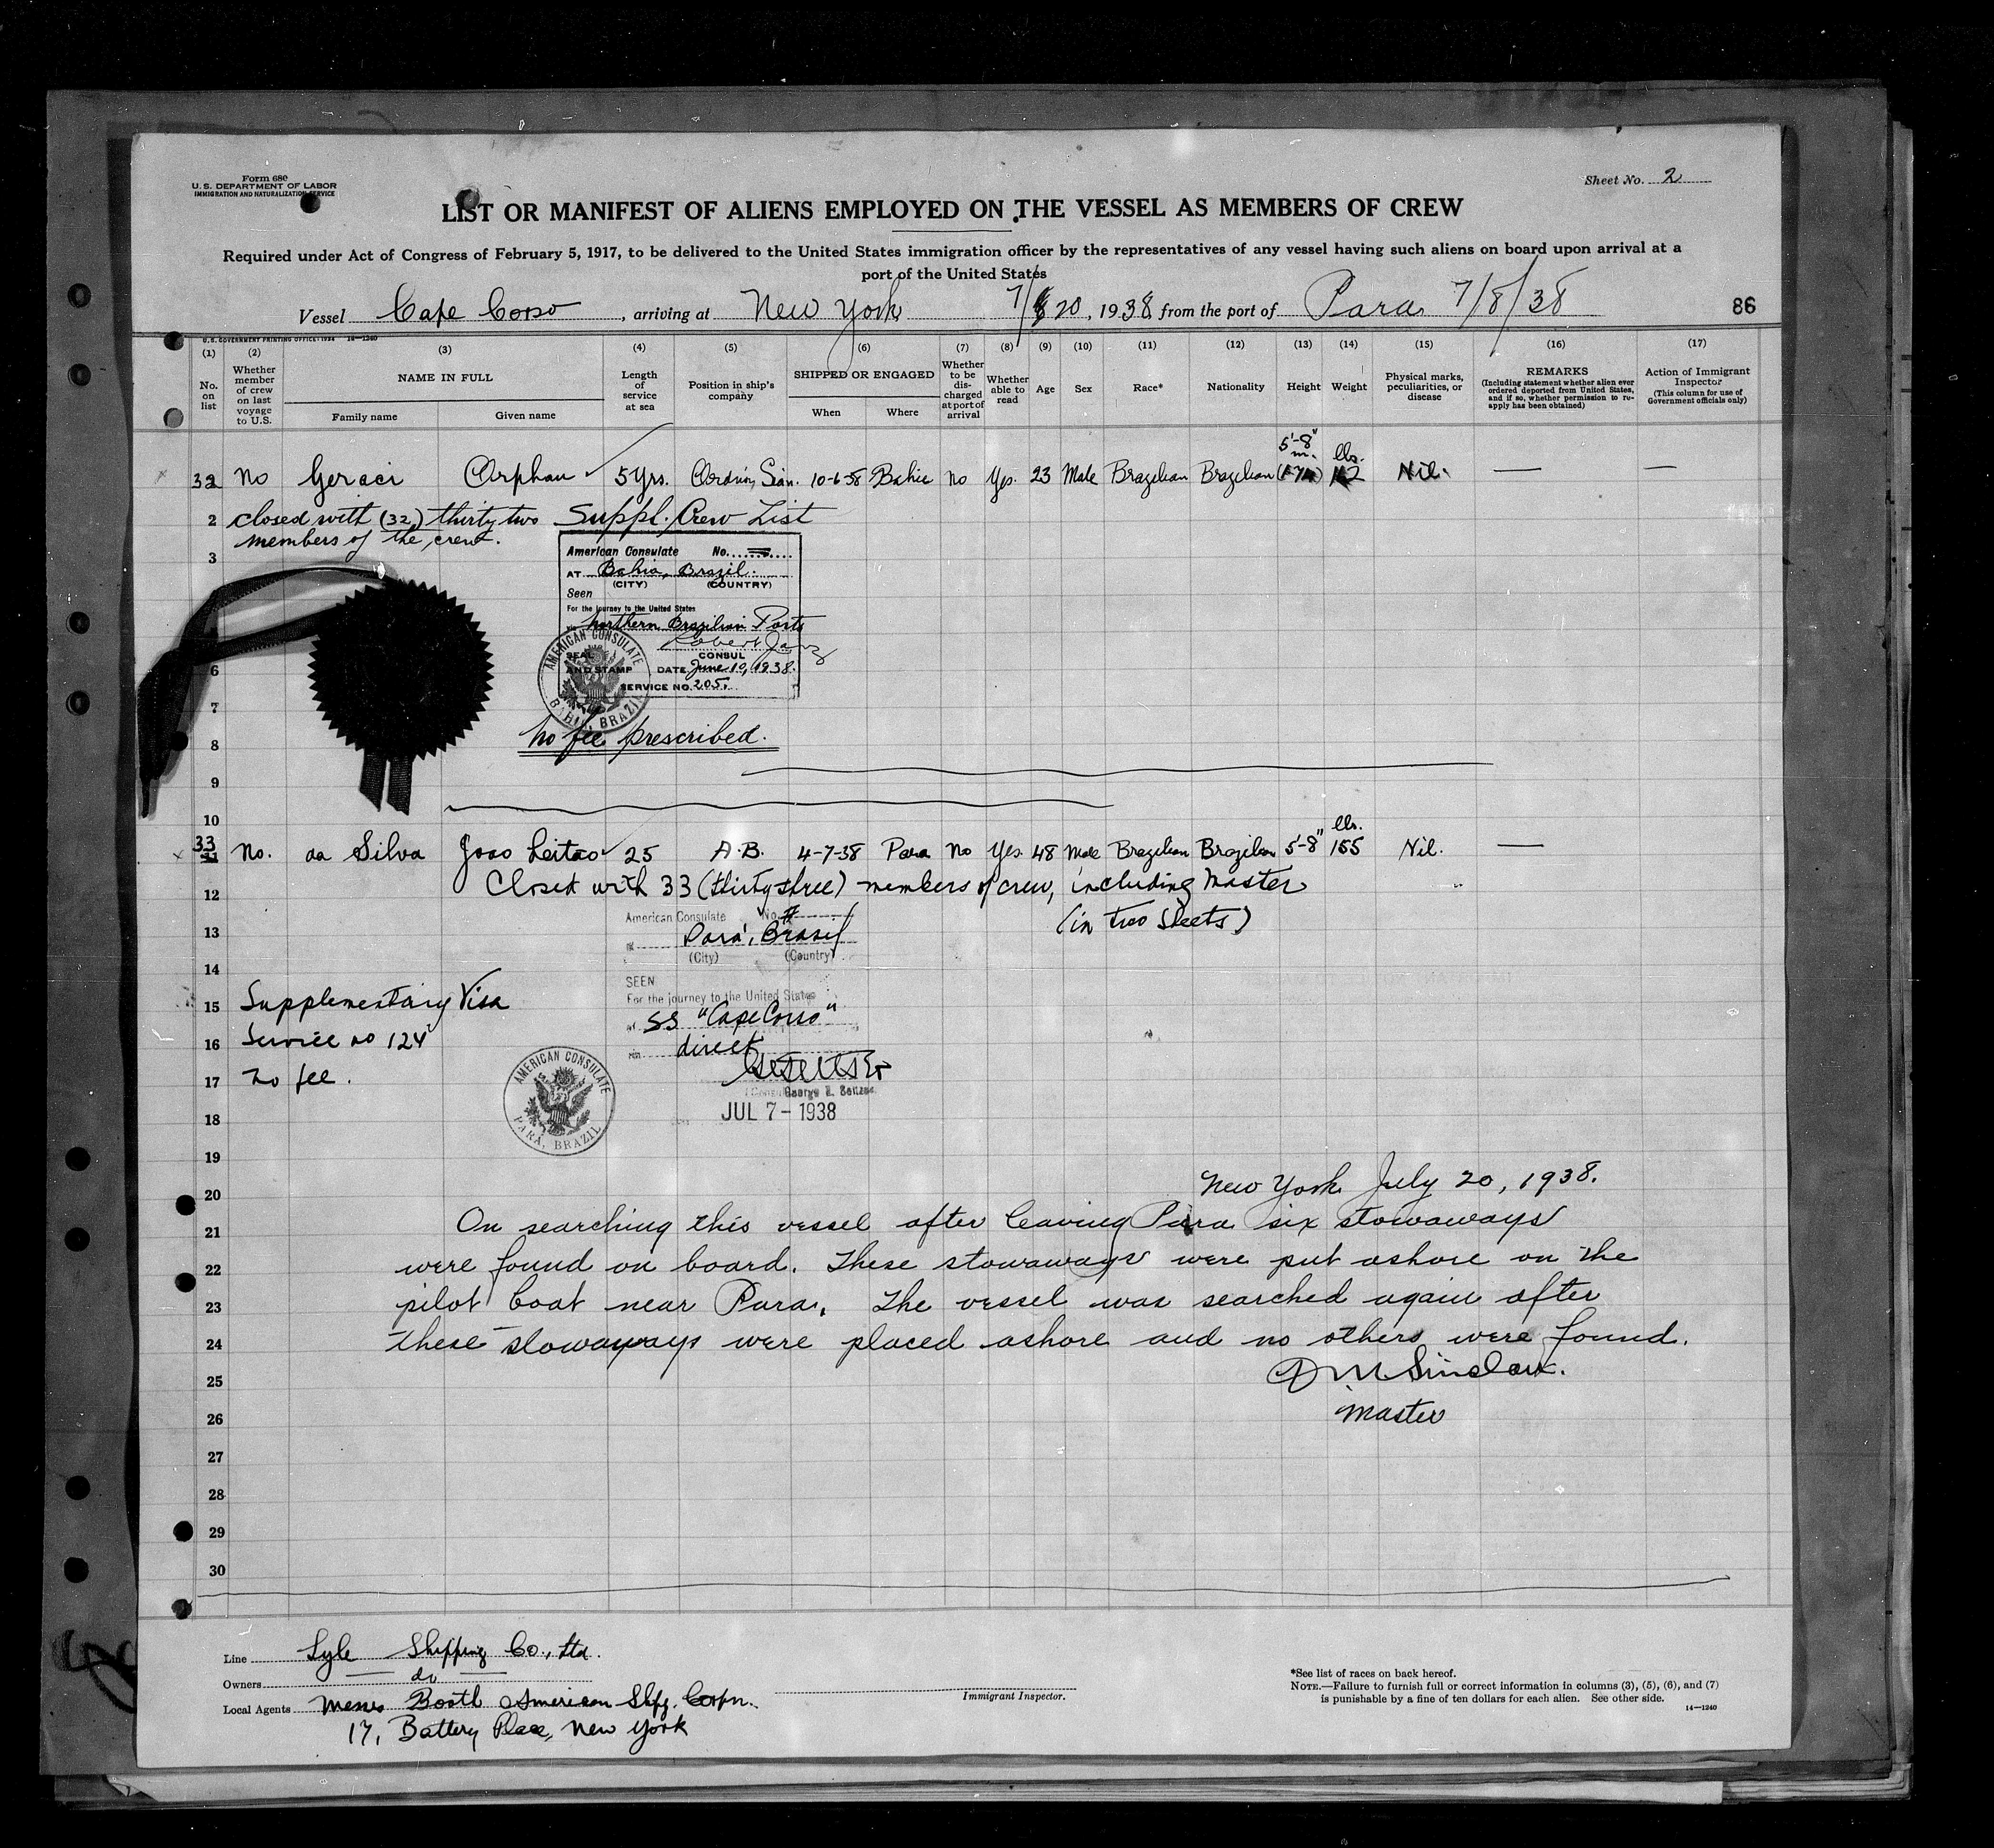 Form 680
U.S. DEPARTMENT OF LABOR
IMMIGRATION AND NATURALIZATION SERVICE
Sheet No. 2
LIST OR MANIFEST OF ALIENS EMPLOYED ON THE VESSEL AS MEMBERS OF CREW
Required under Act of Congress of February 5, 1917, to be delivered to the United States immigration officer by the representatives of any vessel having such aliens on board upon arrival at a
port of the United States
Vessel Cape Corso, arriving at New York 7/20, 1938, from the port of Para 7/8/38
86
U.S. GOVERNMENT PRINTING OFFICE: 1934 14—1240
(1) (2) (3) (4) (5) (6) (7) (8) (9) (10) (11) (12) (13) (14) (15) (16) (17)
No. on list
Whether member of crew on last voyage to U.S.
NAME IN FULL
Family name
Given name
Length of service at sea
Position in ship's company
SHIPPED OR ENGAGED
When
Where
Whether to be discharged at port of arrival
Whether able to read
Age
Sex
Race*
Nationality
Height
Weight
Physical marks, peculiarities, or disease
REMARKS
(Including statement whether alien ever ordered deported from United States, and if so, whether permission to reapply has been obtained)
Action of Immigrant Inspector
(This column for use of Government officials only)
5'-8" lbs.
32 No Geraci Orphau 5 Yrs. 10-6-38 Bahia No Yes. 23 Male Brazilian Brazilian Nil. —— —
2 closed with (32) thirty two Suppl. Crew List
members of the crew.
3
American Consulate No.
AT Bahia, Brazil.
(CITY) (COUNTRY)
Seen
For the journey to the United States
via Northern Brazilian Ports
CONSUL
SEAL AND STAMP DATE June 10, 1938.
SERVICE NO. 205.
AMERICAN CONSULATE BAHIA, BRAZIL
6
7
No fee prescribed.
8
9
10
lbs.
33 No. da Silva Joao Leitao 25 A.B. 4-7-38 Para No Yes 48 Male Brazilian Brazilian 5'-8" 155 Nil. ——
12 Closed with 33 (thirty three) members of crew, including Master
(in two sheets)
American Consulate No.
13 at Pará, Brasil
(City) (Country)
14
SEEN
For the journey to the United States
15 Supplementary Visa
SS "Cape Corso"
16 Service no 124
via direct
17 no fee.
George E. Seltzer
JUL 7 - 1938
AMERICAN CONSULATE PARÁ, BRAZIL
18
19
New York July 20, 1938.
20
21 On searching this vessel after leaving Para six stowaways
22 were found on board. These stowaways were put ashore on the
23 pilot boat near Para. The vessel was searched again after
24 these stowaways were placed ashore and no others were found.
25 D M Sinclair.
26 Master
27
28
29
30
Line Lyle Shipping Co., Ltd.
Owners — do —
Local Agents Messrs Booth American Shpg. Corpn.
17, Battery Place, New York
Immigrant Inspector.
*See list of races on back hereof.
NOTE.—Failure to furnish full or correct information in columns (3), (5), (6), and (7)
is punishable by a fine of ten dollars for each alien. See other side.
14—1240